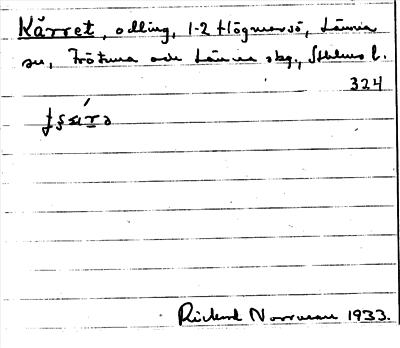 Kärret, odling, 1-2 Högmarsö, Länna
sn, Frötuna och Länna skg., Sthlms l.
324
Rickard Norrman 1933.